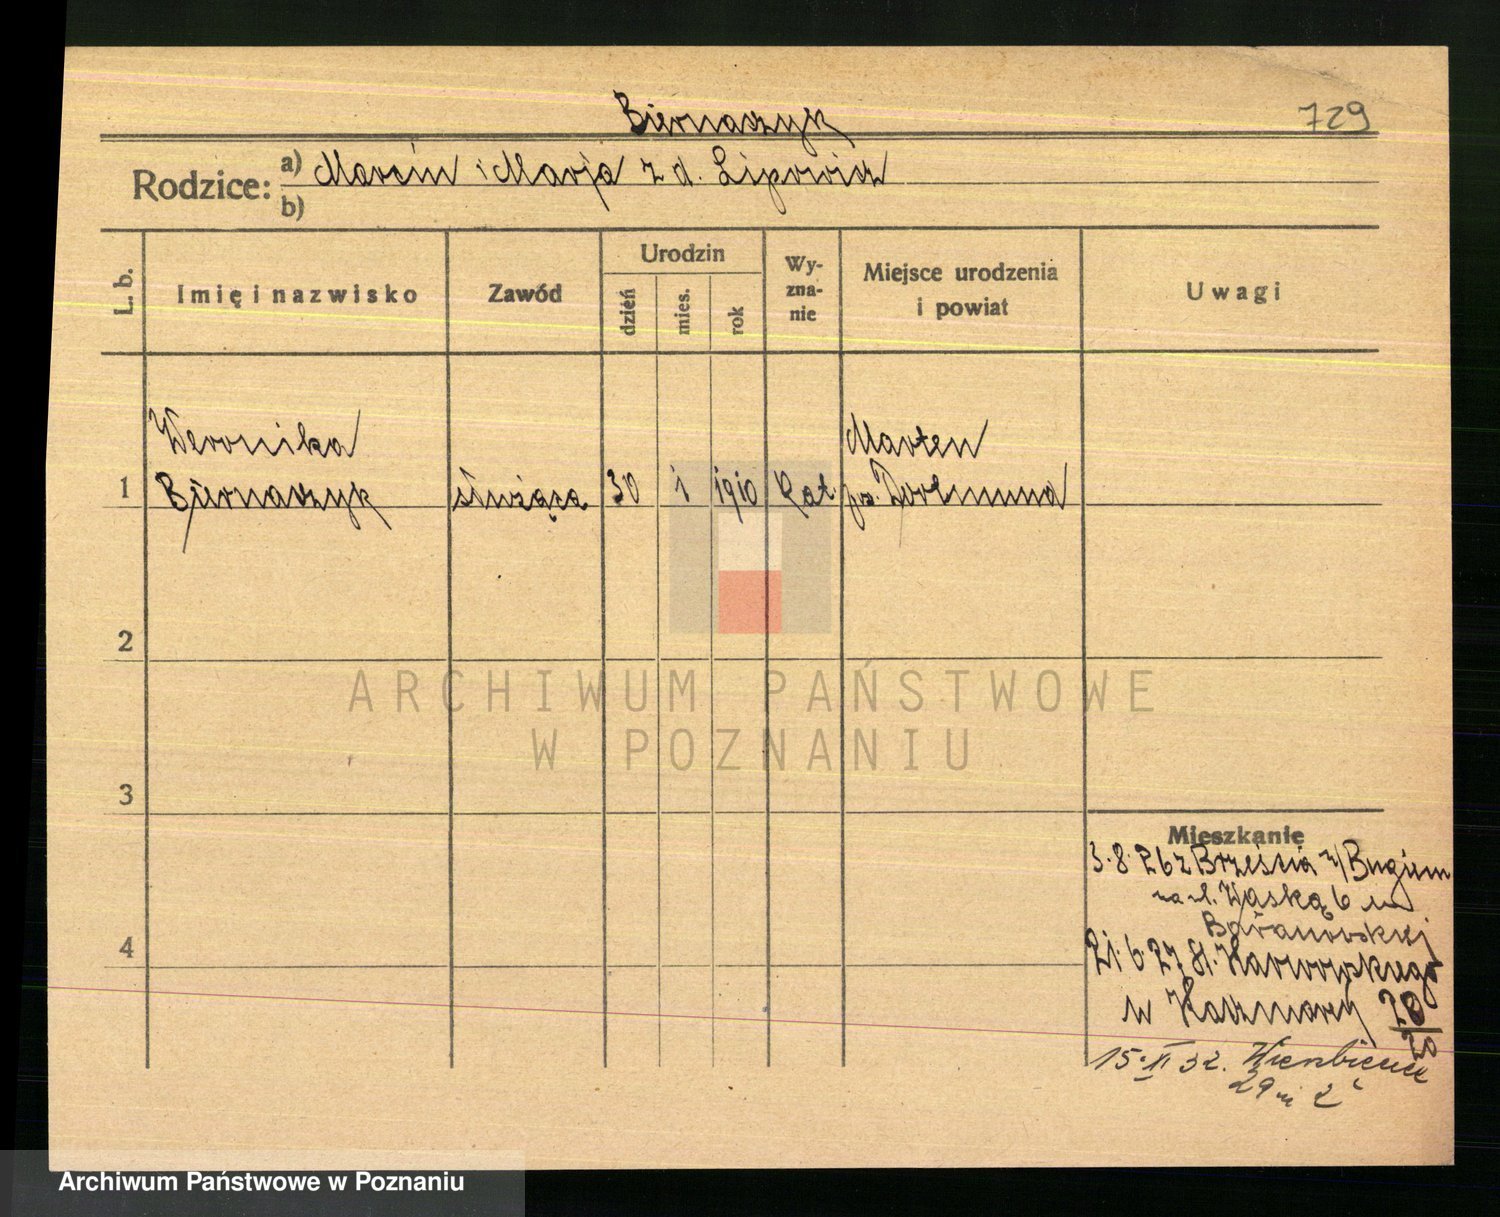 Biernaczyk
729
Rodzice: a) Marcin i Marja z d. Lipowicz
b)
L. b.
Imię i nazwisko
Zawód
Urodzin
dzień
mies.
rok
Wy-
zna-
nie
Miejsce urodzenia
i powiat
Uwagi
Weronika
Marten
1 Biernaczyk służąca 30 1 1910 kat. p. Dortmund
2
ARCHIWUM PAŃSTWOWE
W POZNANIU
3
Mieszkanie
3.8.26 z Brześcia n/Bugiem
na ul. Wąską 6 u
Baranowskiej
4
21.6.27 St. Karwowskiego
u Kaczmarek 20/20
15.XI 32. Wierzbięcice
29 m 2
Archiwum Państwowe w Poznaniu